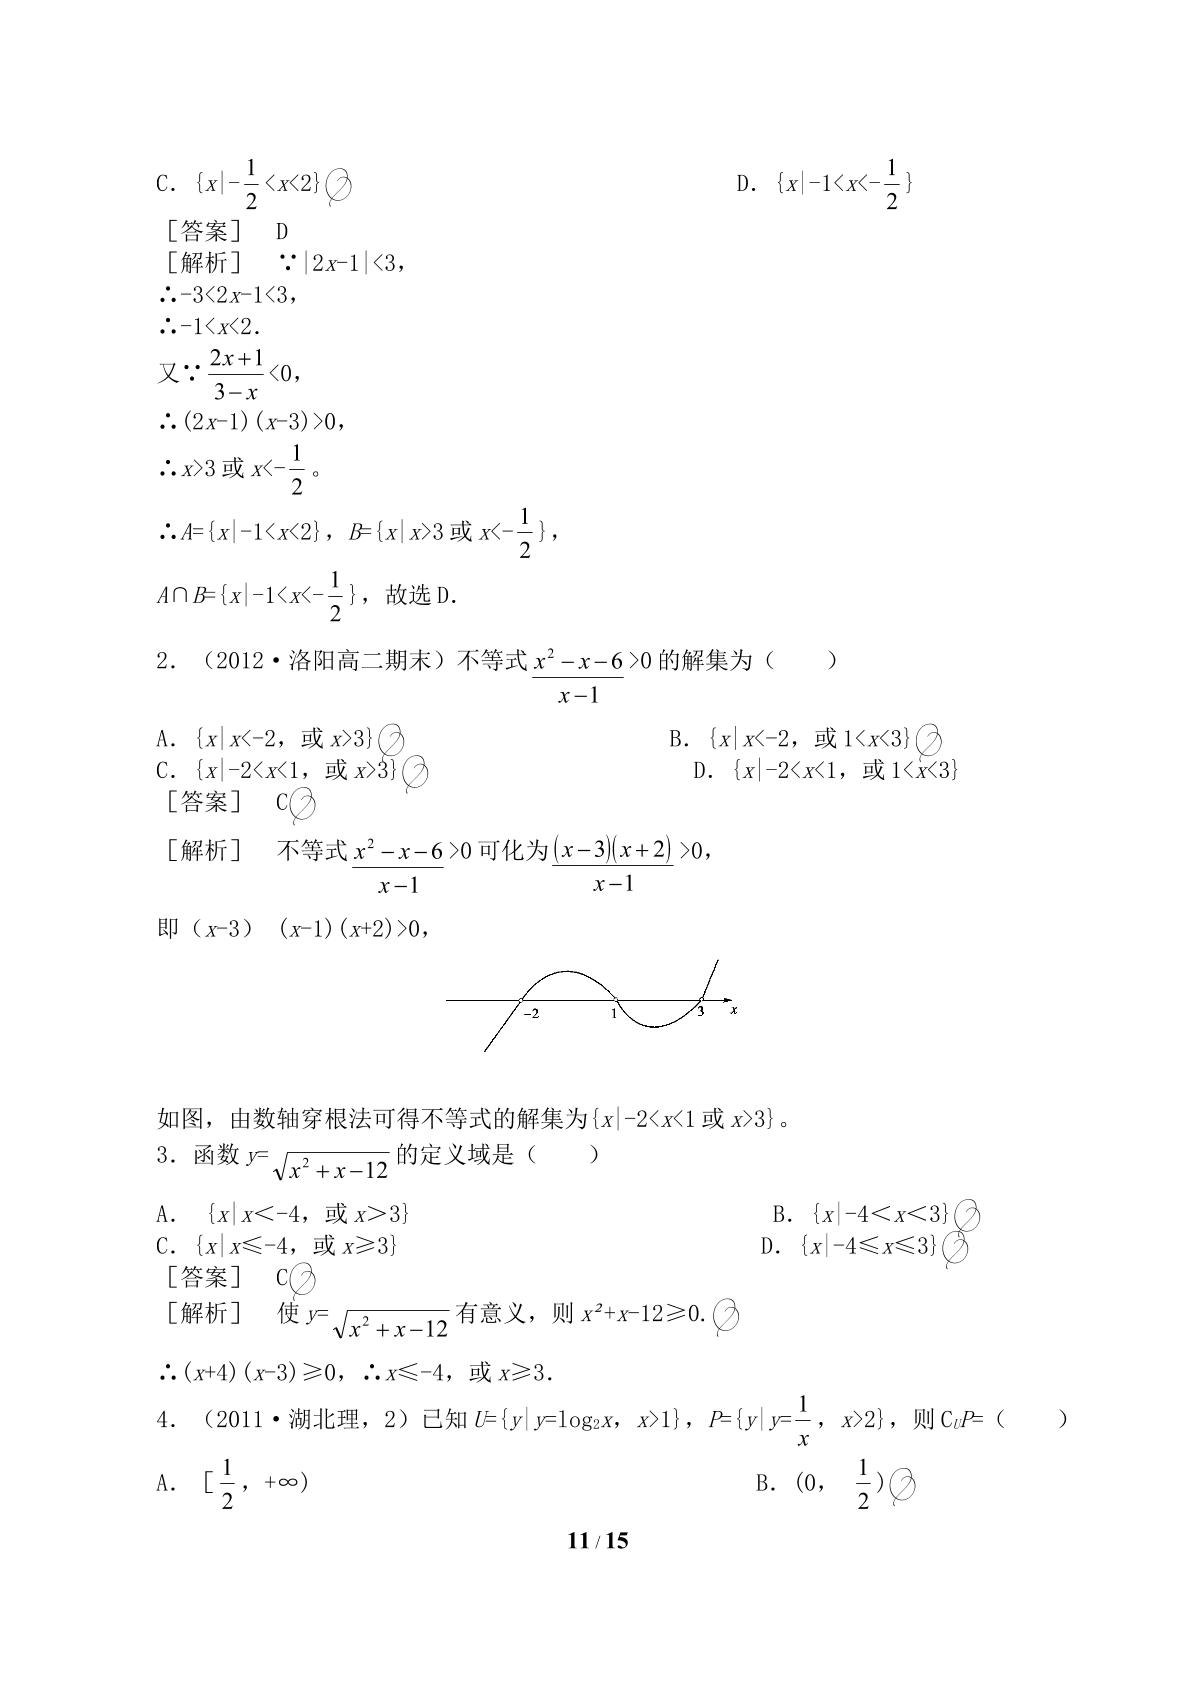 C．{x|-1/2<x<2} D．{x|-1<x<-1/2}
［答案］ D
［解析］ ∵|2x-1|<3，
∴-3<2x-1<3，
∴-1<x<2．
又∵(2x+1)/(3-x)<0，
∴(2x-1)(x-3)>0，
∴x>3或x<-1/2。
∴A={x|-1<x<2}，B={x|x>3或x<-1/2}，
A∩B={x|-1<x<-1/2}，故选D．
2．（2012·洛阳高二期末）不等式(x²-x-6)/(x-1)>0的解集为（ ）
A．{x|x<-2，或x>3} B．{x|x<-2，或1<x<3}
C．{x|-2<x<1，或x>3} D．{x|-2<x<1，或1<x<3}
［答案］ C
［解析］ 不等式(x²-x-6)/(x-1)>0可化为(x-3)(x+2)/(x-1)>0，
即（x-3） (x-1)(x+2)>0，
-2 1 3 x
如图，由数轴穿根法可得不等式的解集为{x|-2<x<1或x>3}。
3．函数y=√(x²+x-12)的定义域是（ ）
A． {x|x＜-4，或x＞3} B．{x|-4＜x＜3}
C．{x|x≤-4，或x≥3} D．{x|-4≤x≤3}
［答案］ C
［解析］ 使y=√(x²+x-12)有意义，则x²+x-12≥0.
∴(x+4)(x-3)≥0，∴x≤-4，或x≥3．
4．（2011·湖北理，2）已知U={y|y=log₂x，x>1}，P={y|y=1/x，x>2}，则C_UP=（ ）
A．［1/2，+∞) B．(0， 1/2)
11 / 15